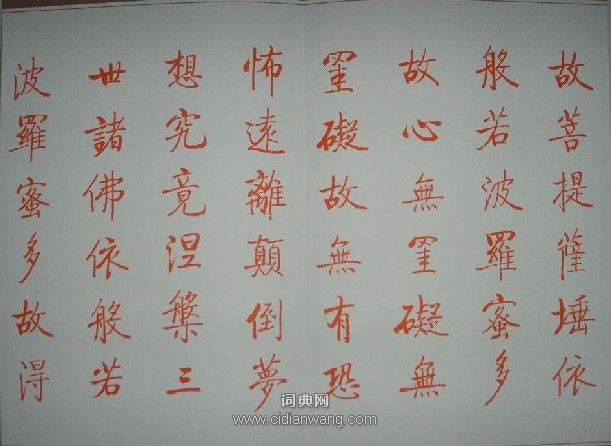 故菩提薩埵依
般若波羅蜜多
故心無罣礙無
罣礙故無有恐
怖遠離顛倒夢
想究竟涅槃三
世諸佛依般若
波羅蜜多故得
词典网
www.cidianwang.com